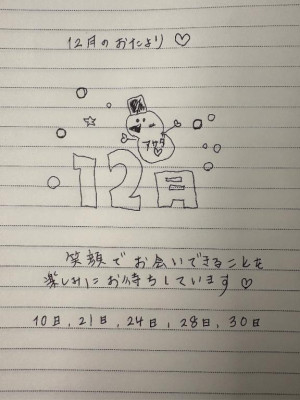 12月のおたより♡
12月
笑顔でお会いできることを
楽しみにお待ちしています♡
10日, 21日, 24日, 28日, 30日